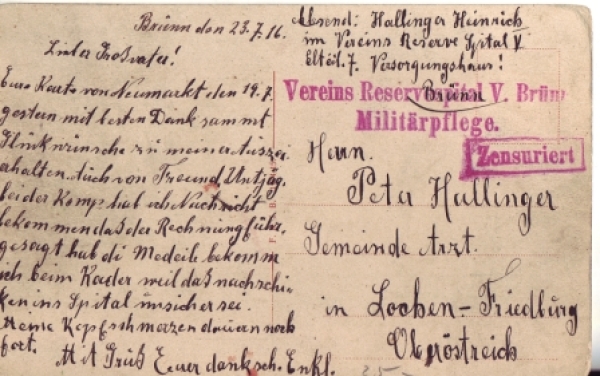 Brünn den 23.7.16.
Lieber Großvater!
Eure Karte von Neumarkt den 19.7.
gestern mit besten Dank sammt
Glückwünsche zu meiner Auszei
erhalten. Auch von Freund Untjäg.
bei der Komp hab ich Nachricht
bekommen das der Rechnungsführ.
gesagt hab di Medeile bekomm
ich beim Kader weil das nachschi-
ken ins Spital unsicher sei.
Meine Kopfschmerzen dauern noch
fort. Mit Gruß Eurer danksch. Enkl.
Absend: Hallinger Heinrich
im Vereins Reserve Spital V
Abteil. 7. Versorgungshaus!
Brünn
Vereins Reservespital V. Brünn
Militärpflege.
Zensuriert
Herrn.
Peter Hallinger
Gemeinde Arzt.
in Lochen-Friedburg
Oberöstreich
25-